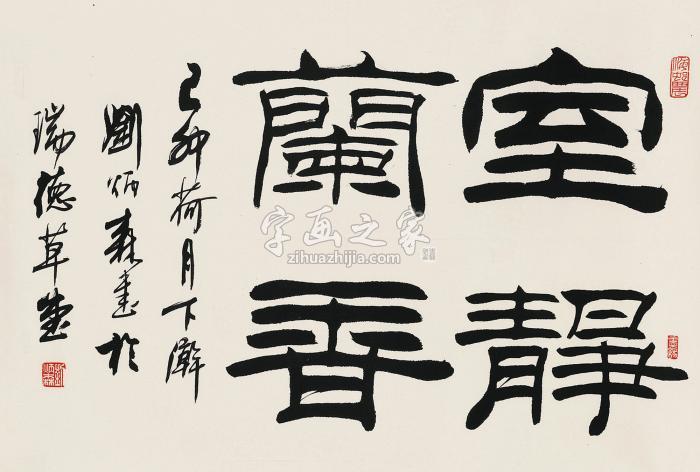 室靜
蘭香
己卯荷月下澣
劉炳森書於
瑞德草堂
字画之家
zihuazhijia.com